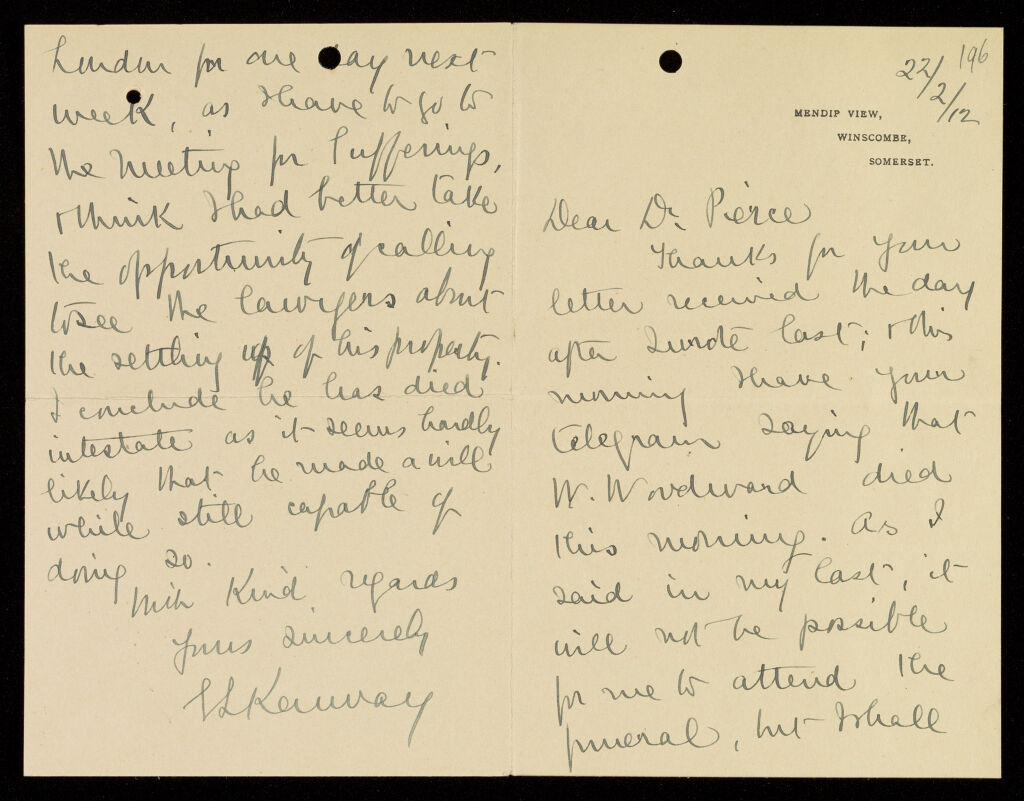 196
22/2/12
MENDIP VIEW,
WINSCOMBE,
SOMERSET.
Dear Dr. Pierce
Thanks for your
letter received the day
after I wrote last; & this
morning I have your
telegram saying that
W. Woodward died
this morning. As I
said in my last, it
will not be possible
for me to attend the
funeral, but I shall
London for one day next
week, as I have to go to
the Meeting for Sufferings,
& think I had better take
the opportunity of calling
to see the lawyers about
the settling up of his property.
I conclude he has died
intestate as it seems hardly
likely that he made a will
while still capable of
doing so.
With Kind regards
Yours sincerely
Kenway